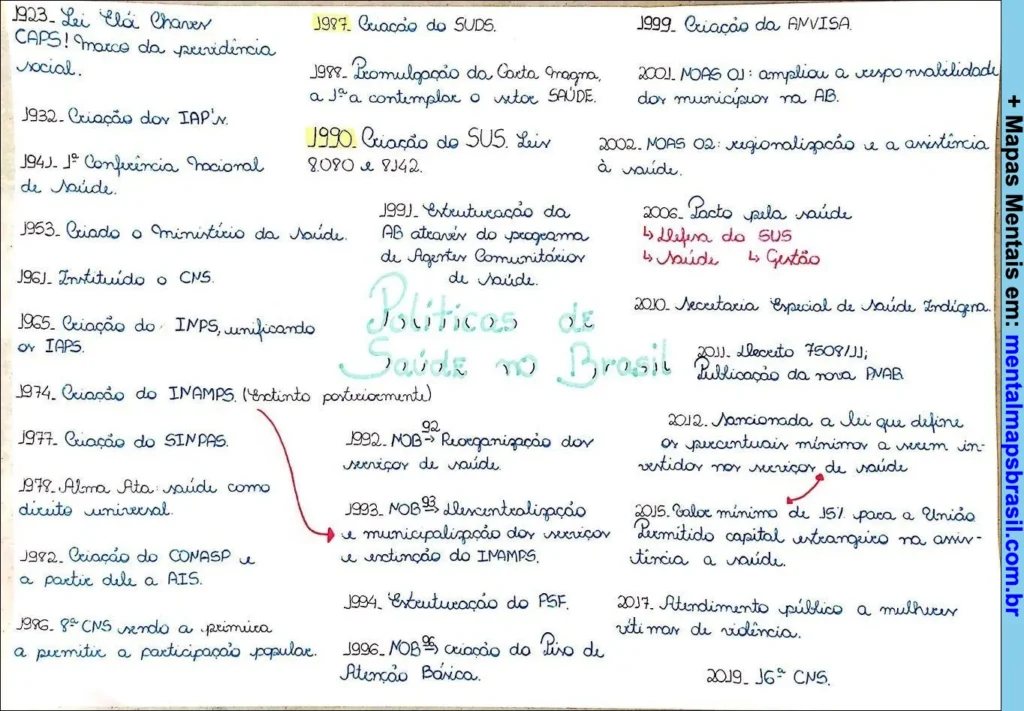 1923_ Lei Elói Chaves
CAPS! Marco da previdência
social.
1932_ Criação dos IAP's.
1941_ 1ª Conferência Nacional
de Saúde.
1953_ Criado o Ministério da Saúde.
1961_ Instituído o CNS.
1965_ Criação do INPS, unificando
os IAPS.
1974_ Criação do INAMPS. (Extinto posteriormente)
1977_ Criação do SINPAS.
1978_ Alma Ata: saúde como
direito universal.
1982_ Criação do CONASP e
a partir dele a AIS.
1986_ 8ª CNS sendo a primeira
a permitir a participação popular.
1987_ Criação do SUDS.
1988_ Promulgação da Carta Magna,
a 1ª a contemplar o setor SAÚDE.
1990_ Criação do SUS. Leis
8.080 e 8.142.
1991_ Estruturação da
AB através do programa
de Agentes Comunitários
de Saúde.
Políticas de
Saúde no Brasil
1992_ NOB 92 → Reorganização dos
serviços de saúde.
1993_ NOB 93 → Descentralização
e municipalização dos serviços
e extinção do INAMPS.
1994_ Estruturação do PSF.
1996_ NOB 96 → criação do Piso de
Atenção Básica.
1999_ Criação da ANVISA.
2001_ NOAS 01: ampliou a responsabilidade
dos municípios na AB.
2002_ NOAS 02: regionalização e a assistência
à saúde.
2006_ Pacto pela saúde
↳ Defesa do SUS
↳ Saúde ↳ Gestão
2010_ Secretaria Especial de Saúde Indígena.
2011_ Decreto 7508/11;
Publicação da nova PNAB
2012_ Sancionada a lei que define
os percentuais mínimos a serem in-
vestidos nos serviços de saúde
2015_ Valor mínimo de 15% para a União
Permitido capital estrangeiro na assis-
tência a saúde.
2017_ Atendimento público a mulheres
vítimas de violência.
2019_ 16ª CNS.
+ Mapas Mentais em: mentalmapsbrasil.com.br